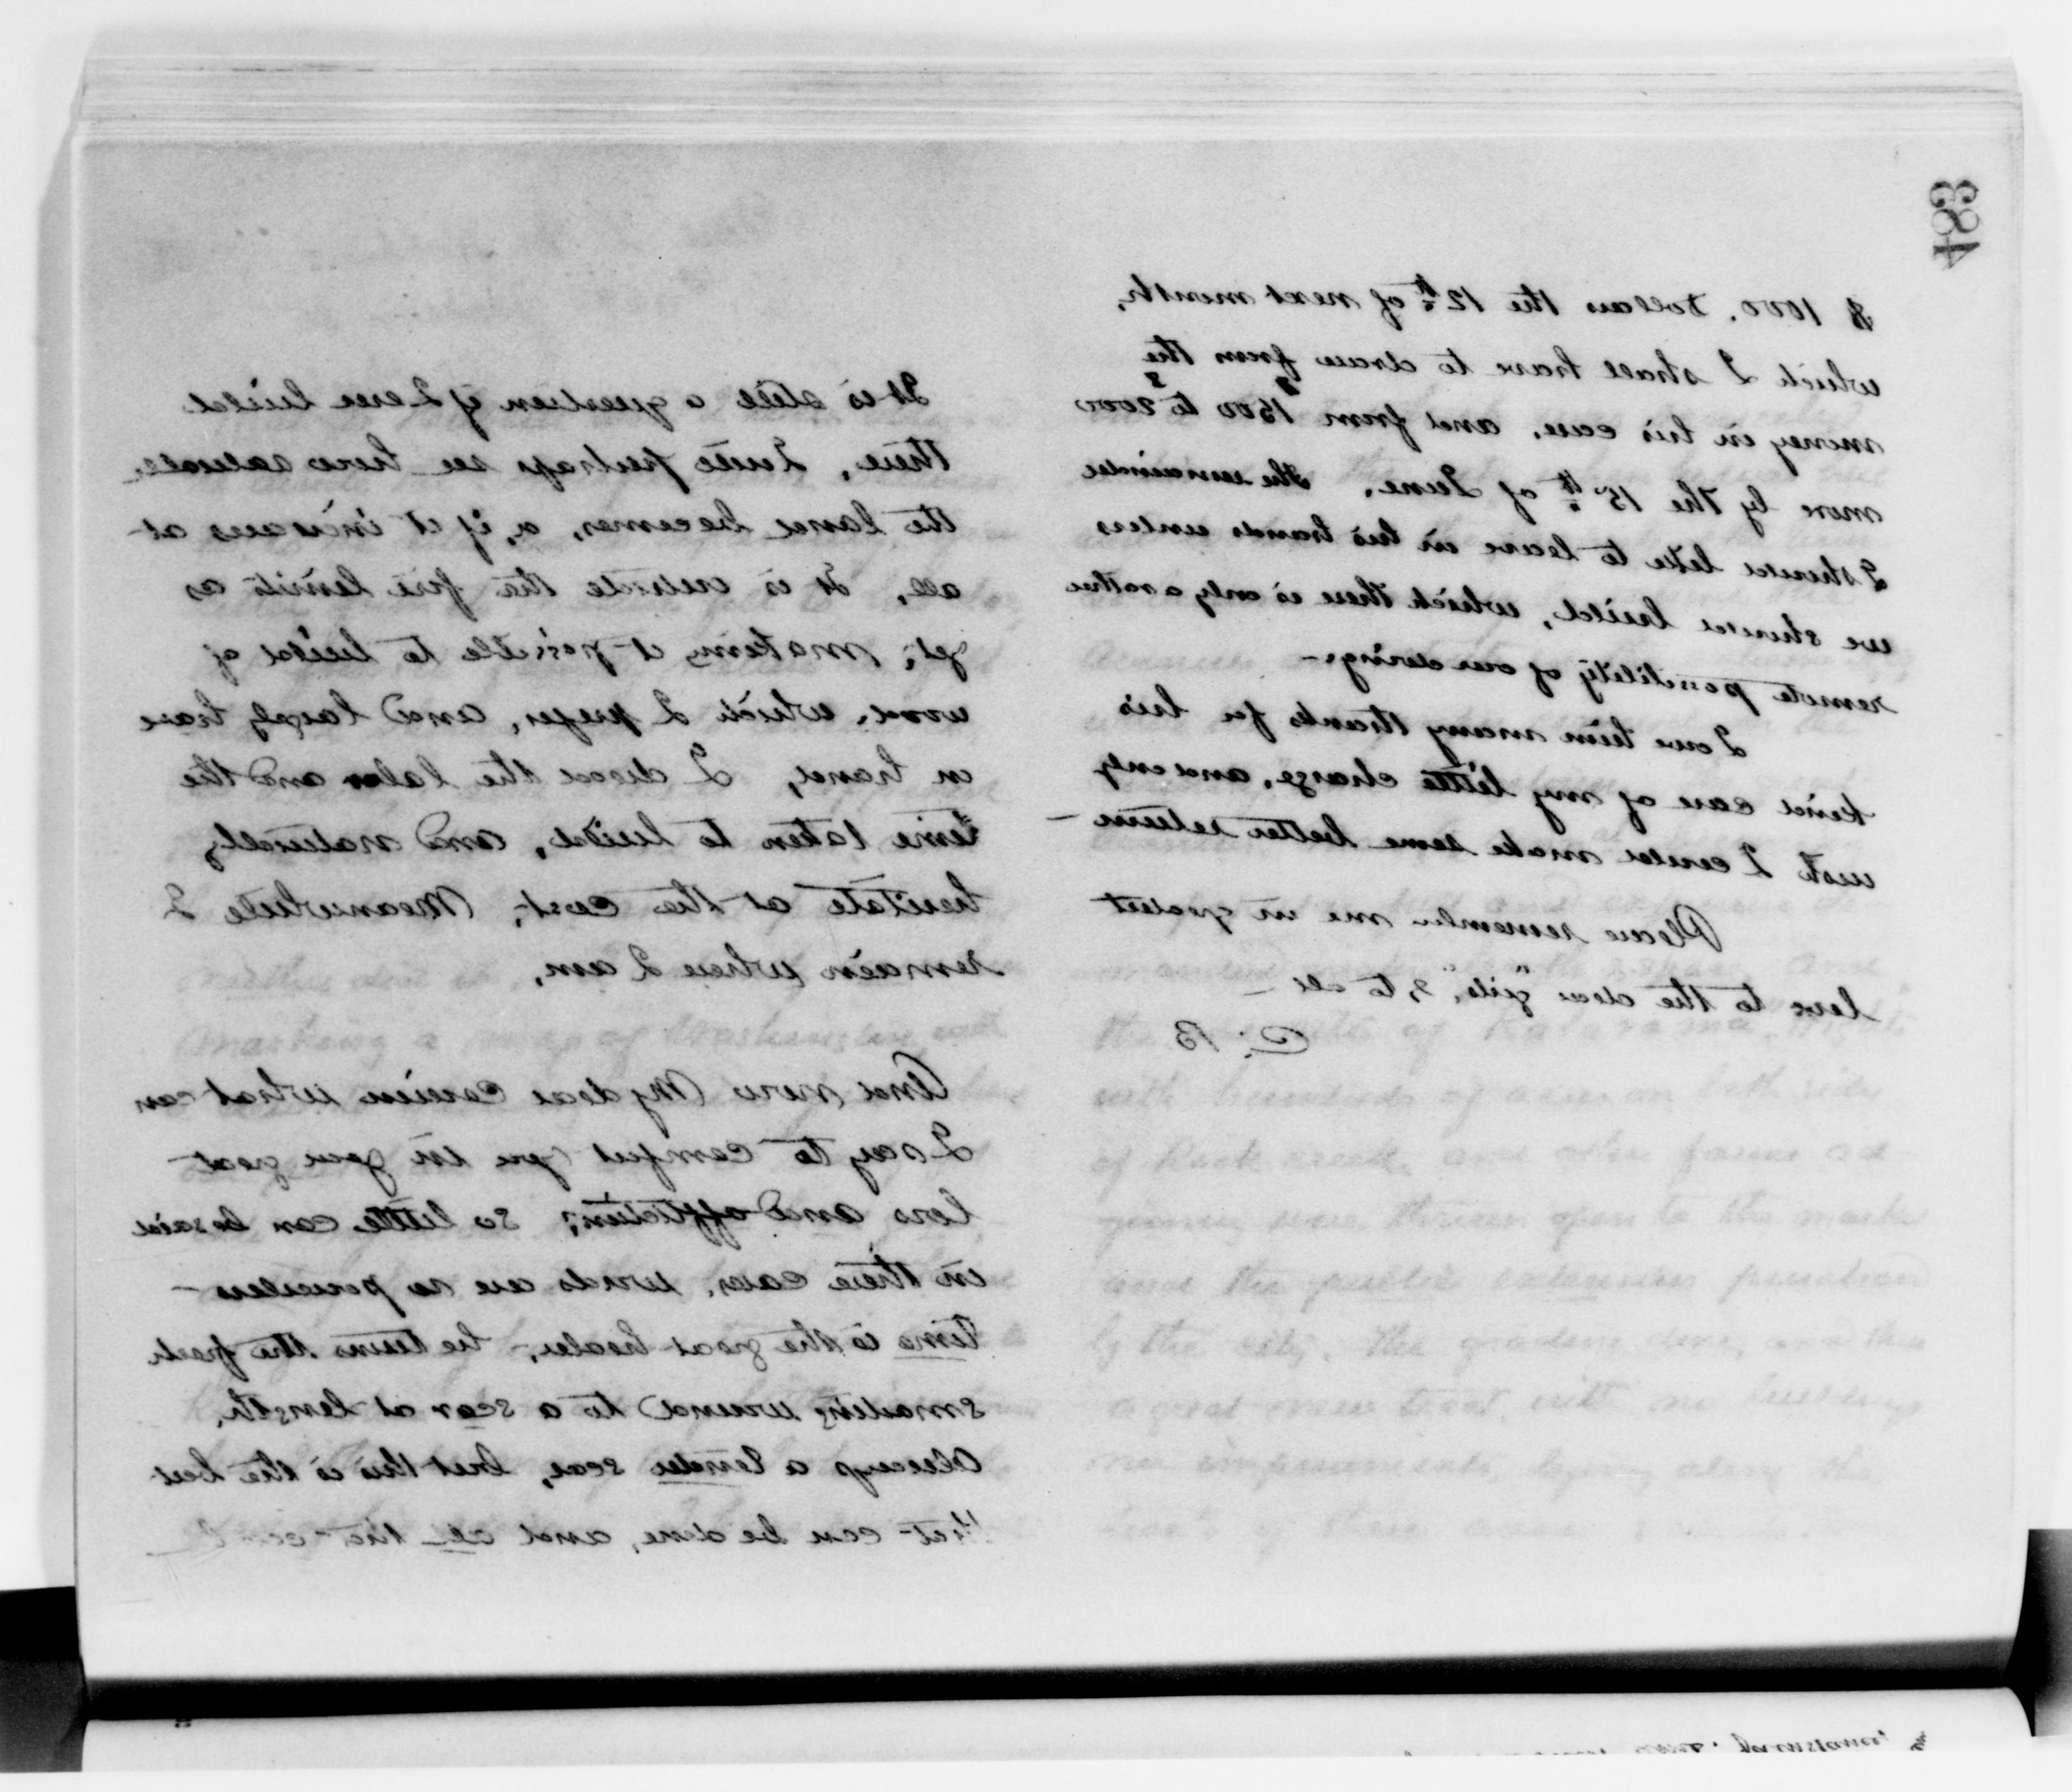 483
$ 1000. Dollars the 12th of next month,
which I shall have to draw from the
money in his care, and from $1500 to $2000
more by the 15th of June. The remainder
I should like to leave in his hands unless
we should build, which there is only a rather
remote possibility of our doing.-
I owe him many thanks for his
kind care of my little charge, and only
wish I could make some better return -
Please remember me in greatest
love to the dear "girls", & to all -
C. B
It is still a question if I ever build
there, I will perhaps see how valuable
the land becomes, or, if it increases at
all, It is outside the fire limits as
yet; making it possible to build of
wood, which I prefer, and largely have
on hand, I dread the labor and the
time taken to build, and naturally
hesitate at the cost, Meanwhile I
remain where I am,
And now My dear Cousin what can
I say to comfort you in your great
loss and affliction; so little can be said
in these cases, words are so powerless -
time is the great healer; he turns the fresh
smarting wound to a scar at length,
Always a tender scar, but this is the best
that can be done, and all that